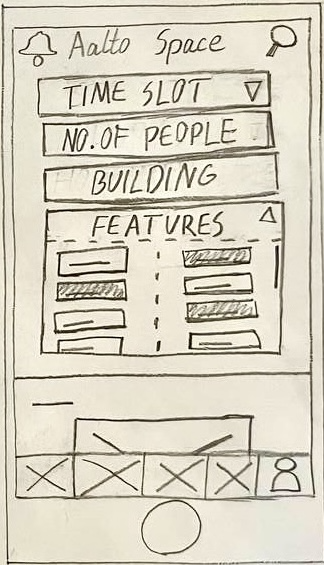 Aalto Space
TIME SLOT
NO. OF PEOPLE
BUILDING
FEATURES